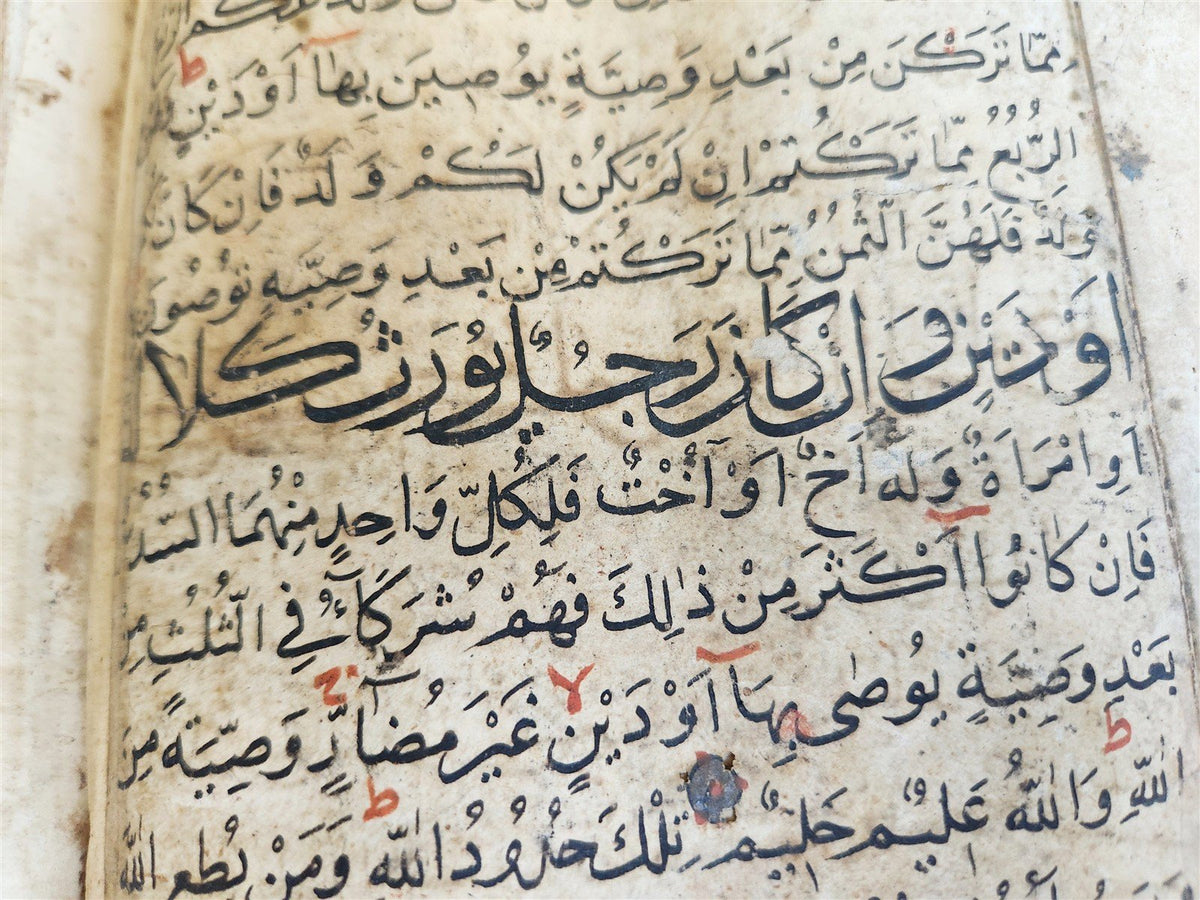 مِمَّا تَرَكْنَ مِنْ بَعْدِ وَصِيَّةٍ يُوصِينَ بِهَآ اَوْ دَيْنٍ ط
الرُّبُعُ مِمَّا تَرَكْتُمْ اِنْ لَمْ يَكُنْ لَكُمْ وَلَدٌ فَاِنْ كَانَ
وَلَدٌ فَلَهُنَّ الثُّمُنُ مِمَّا تَرَكْتُمْ مِنْ بَعْدِ وَصِيَّةٍ تُوصُونَ
اَوْ دَيْنٍ وَ اِنْ كَانَ رَجُلٌ يُورَثُ كَلَا
اَوِ امْرَاَةٌ وَلَهُ اَخٌ اَوْ اُخْتٌ فَلِكُلِّ وَاحِدٍ مِنْهُمَا السُّدُ
فَاِنْ كَانُوا اَكْثَرَ مِنْ ذٰلِكَ فَهُمْ شُرَكَآءُ فِي الثُّلُثِ مِنْ
بَعْدِ وَصِيَّةٍ يُوصٰى بِهَآ اَوْ دَيْنٍ لا غَيْرَ مُضَآرٍّ ج وَصِيَّةً مِنَ
اللّٰهِ ط وَاللّٰهُ عَلِيمٌ حَلِيمٌ تِلْكَ حُدُودُ اللّٰهِ ط وَمَنْ يُطِعِ اللّٰهَ